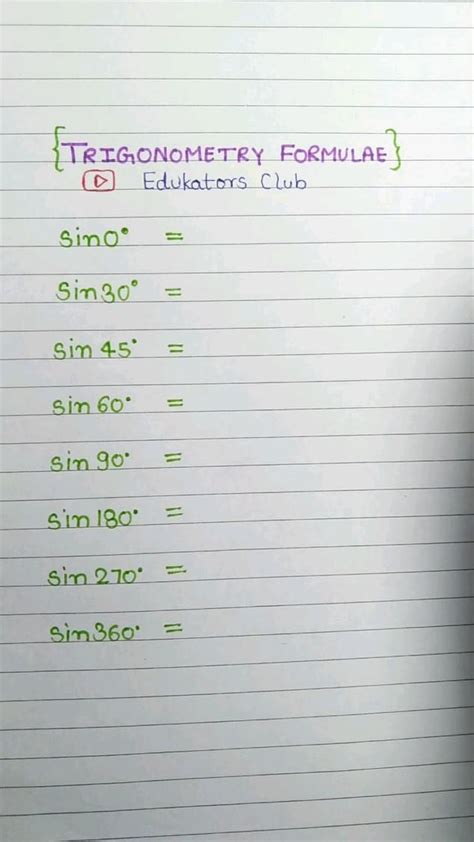 {TRIGONOMETRY FORMULAE}
Edukators Club
sin0° =
Sin30° =
sin 45° =
sin 60° =
sin 90° =
sin 180° =
sin 270° =
sin360° =